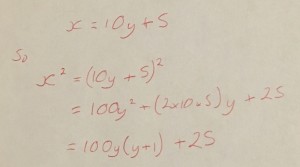 x = 10y + 5
So
x² = (10y + 5)²
= 100y² + (2×10×5)y + 25
= 100y(y+1) + 25